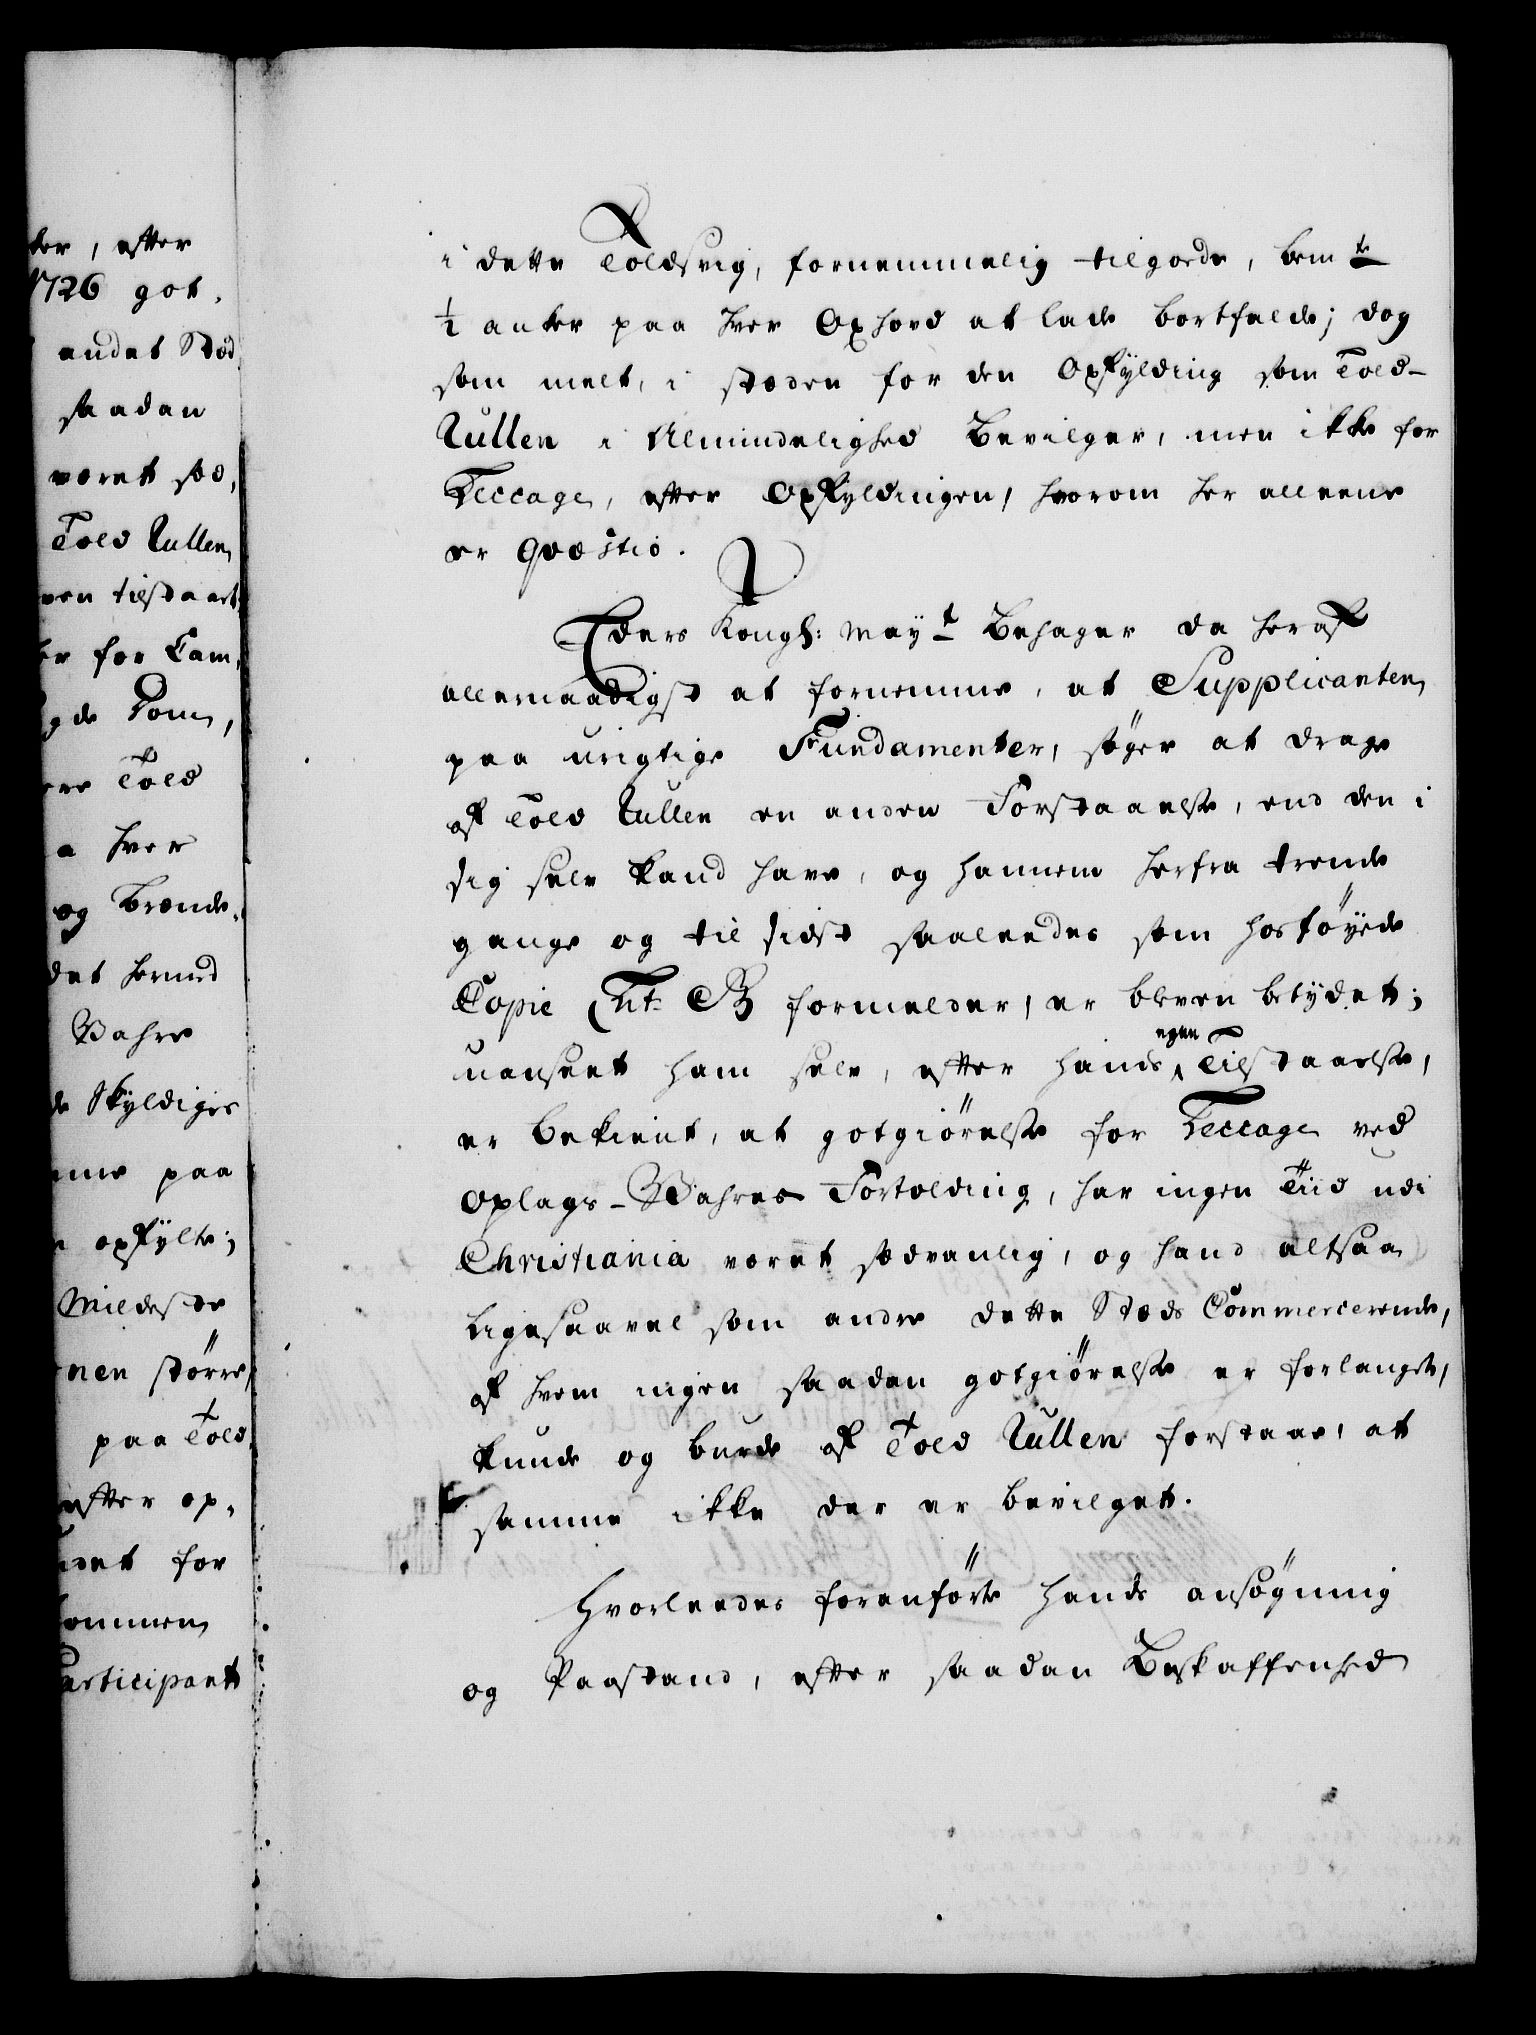 ker, efter
1726 got,
andet Stæd
saadan
været sæd,
Told Rullen
ven tilstaaet
er for Cam,
gde Tom,
ere Told
a hver
og Brænde,
det hermed
Wahre
de Skyldiges
me paa
opfylte;
Mildeste
nen større,
paa Told
efter op,
det for
ommen
Participant
i dette Toldsvig, fornemmelig tilgode, bemte
½ anker paa hver Oxhovd at lade bortfalde; dog
som melt, i stæden for den Opfylding som Told-
Rullen i Almindelighed Bevilger, men ikke for
Leccage, efter Opfyldingen, hvorom her alleene
er Qvæstio.
Eders Kongl: Mayt Behager da heraf
allernaadigst at fornemme, at Supplicanten
paa urigtige Fundamenter, søger at drage
af Told Rullen en anden Forstaaelse, end den i
sig selv kand have, og hannem herfra trende
gange og til sidst saaleedes som hosføyede
Copie Lit: B formelder, er bleven betydet;
uanseet ham selv, efter hands egen Tilstaaelse,
er bekient, at gotgiørelse for Leccage ved
Oplags-Wahres Fortolding, har ingen Tiid udi
Christiania været sædvanlig, og hand altsaa
ligesaavel som andre dette Stæds Commercerende,
af hvem ingen saadan gotgiørelse er forlanget,
kunde og burde af Told Rullen forstaae, at
samme ikke der er bevilget.
Hvorleedes foranførte hands ansøgning
og Paastand, efter saadan Beskaffenhed